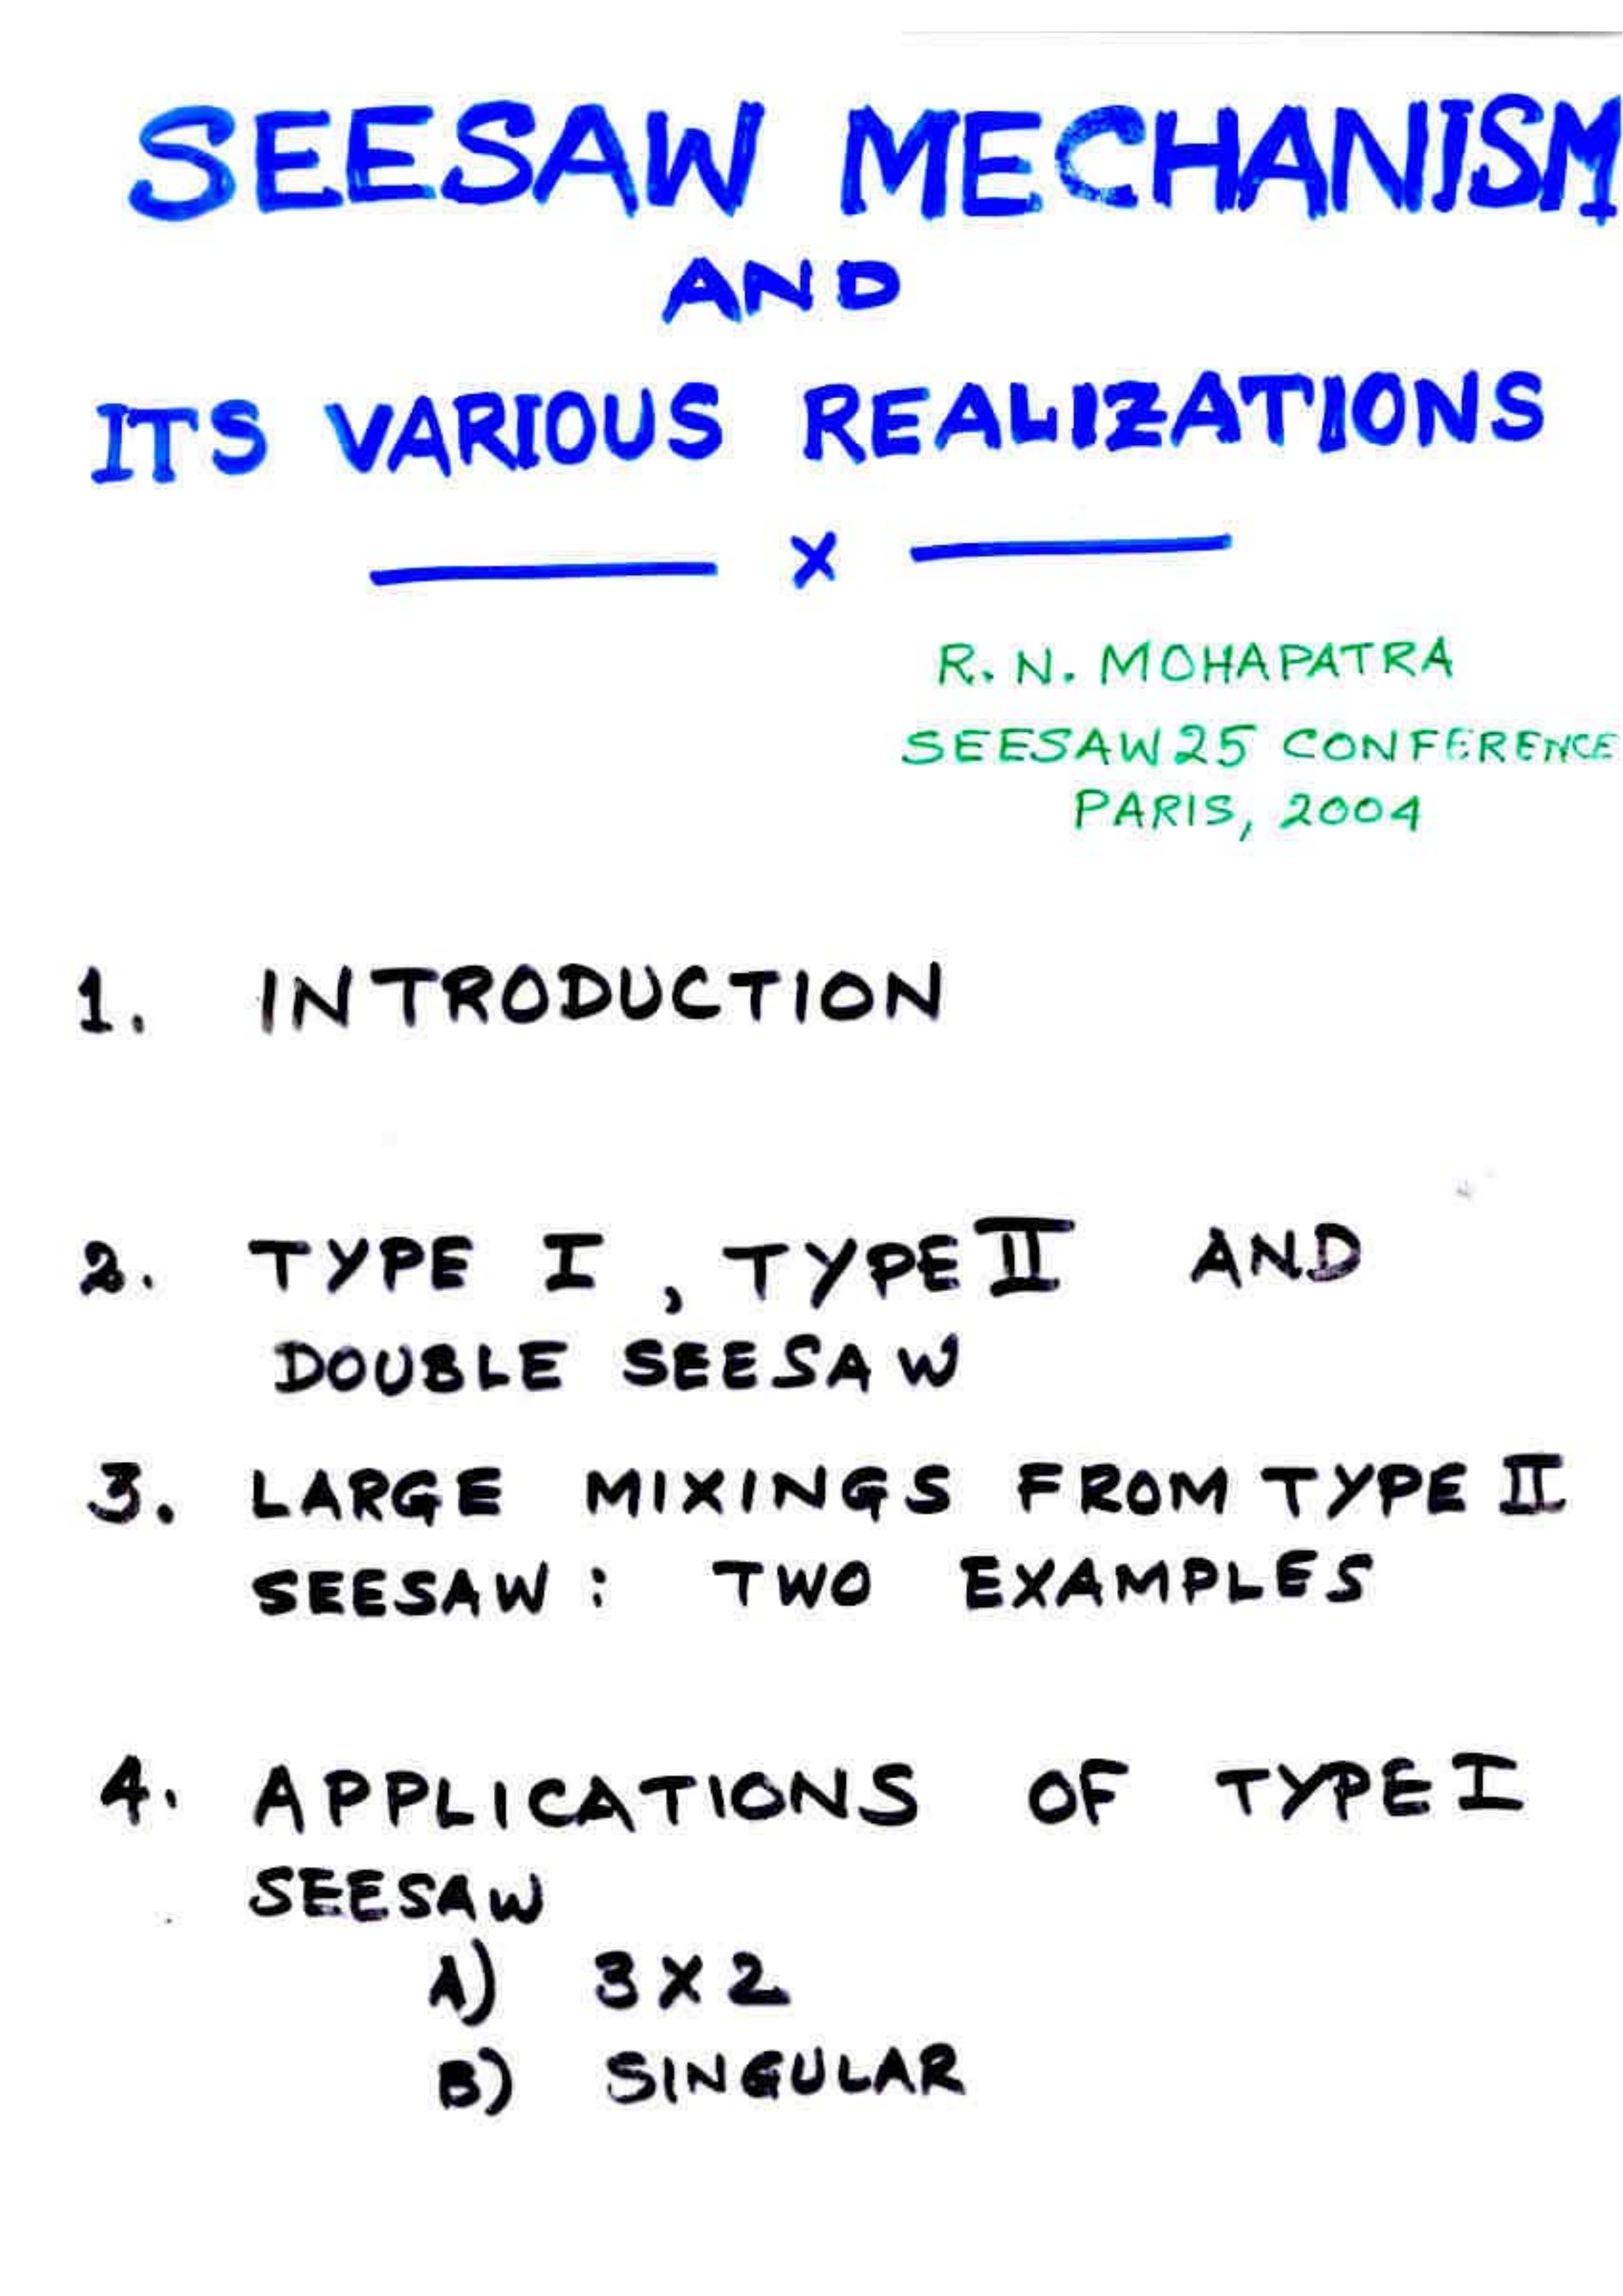 SEESAW MECHANISM
AND
ITS VARIOUS REALIZATIONS
x
R. N. MOHAPATRA
SEESAW25 CONFERENCE
PARIS, 2004
1. INTRODUCTION
2. TYPE I, TYPE II AND
DOUBLE SEESAW
3. LARGE MIXINGS FROM TYPE II
SEESAW: TWO EXAMPLES
4. APPLICATIONS OF TYPE I
SEESAW
A) 3X2
B) SINGULAR